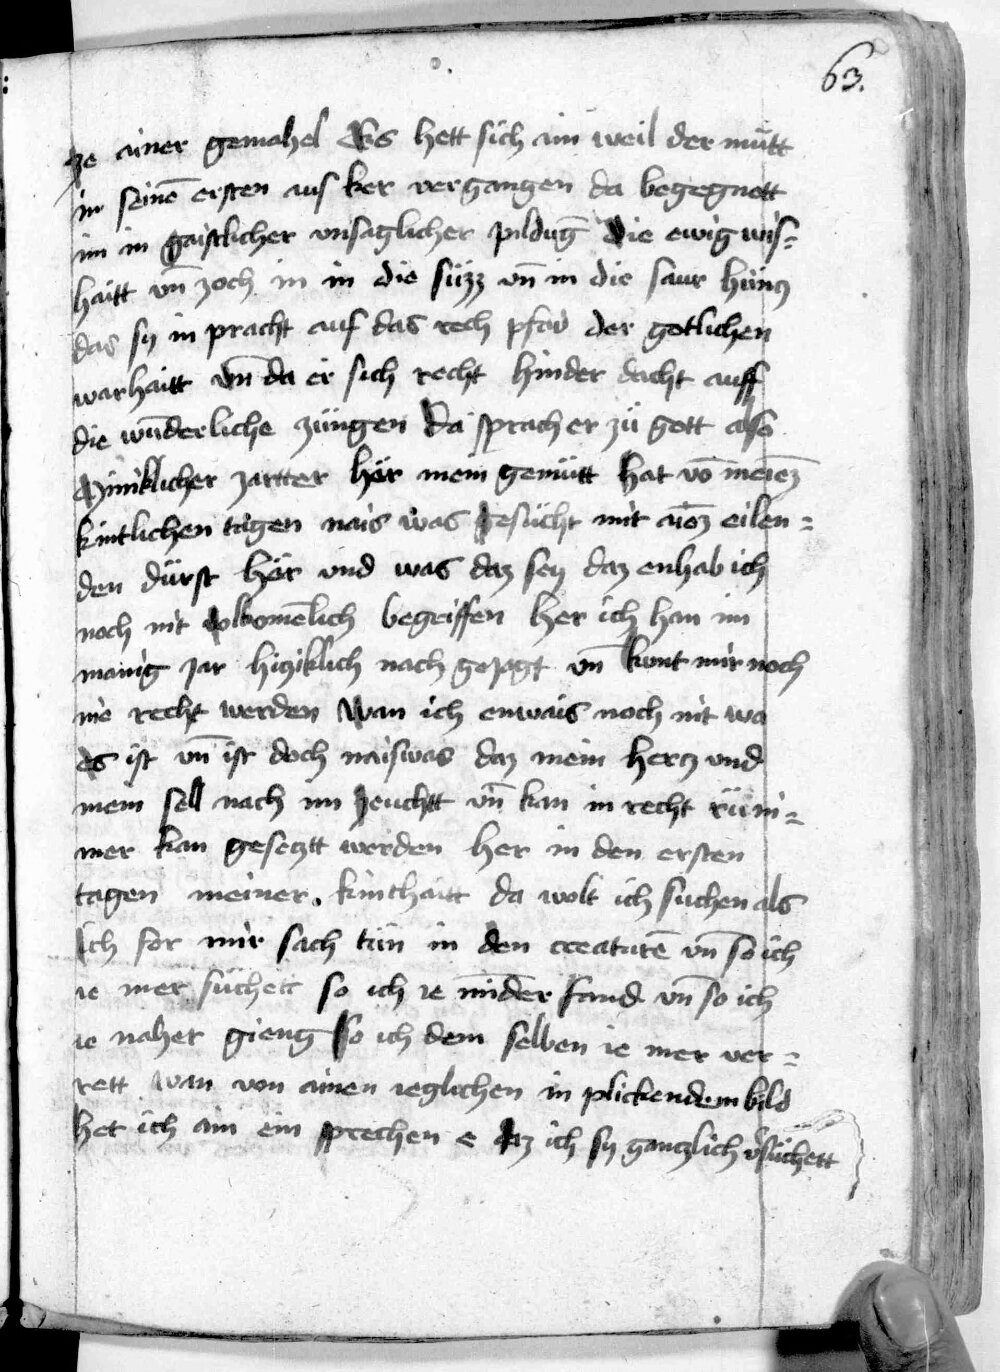 63.
ze ainer gemahel Es hett sich ain weil der mütt
in seinē ersten aus ker vergangen da begegnett
im in gaistlicher vnsaglicher pildūg die ewig wis=
haitt vn̄ zoch in in die süzz vn̄ in die saur hüncz
das sy in pracht auf das rech pfad der gotlichen
warhaitt vn̄ da er sich recht hinder dacht auff
die wūderliche züngen da sprach er zü gott also
Miniklicher zartter her mein gemütt hat vō meinez
kintlichen tagen nais was gesücht mit eilen=
den dürst her vnd was daz sey daz enhab ich
noch nit volkomēlich begriffen her ich han im
manig jar hiziklich nach gejagt vn̄ kunt mir noch
nie recht werden wan ich enwais noch nit wa
es ist vn̄ ist doch naiswas daz mein hercz vnd
mein sell nach im zeuchtt vn̄ kan in recht rüm=
mer kan gesecztt werden her in den ersten
tagen meiner kinthaitt da wolt ich suchen als
ich for mir sach tün in den creaturē vn̄ so ich
ie mer süchett so ich ie mīder fand vn̄ so ich
ie naher gieng so ich dem selben ie mer ver=
rett wan von ainen ieglichen in plickendem bild
het ich ain ein sprechen e daz ich sy ganczlich v̄süchett